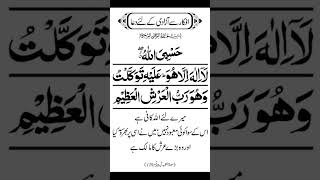 افکار سے آزادی کے لئے دعا
حَسْبِیَ اللّٰہُ
لَاۤ اِلٰہَ اِلَّا ھُوَ عَلَیْہِ تَوَکَّلْتُ
وَھُوَ رَبُّ الْعَرْشِ الْعَظِیْمِ
میرے لئے اللہ کافی ہے
اس کے سوا کوئی معبود نہیں میں نے اسی پر بھروسہ کیا
اور وہ بڑے عرش کا مالک ہے